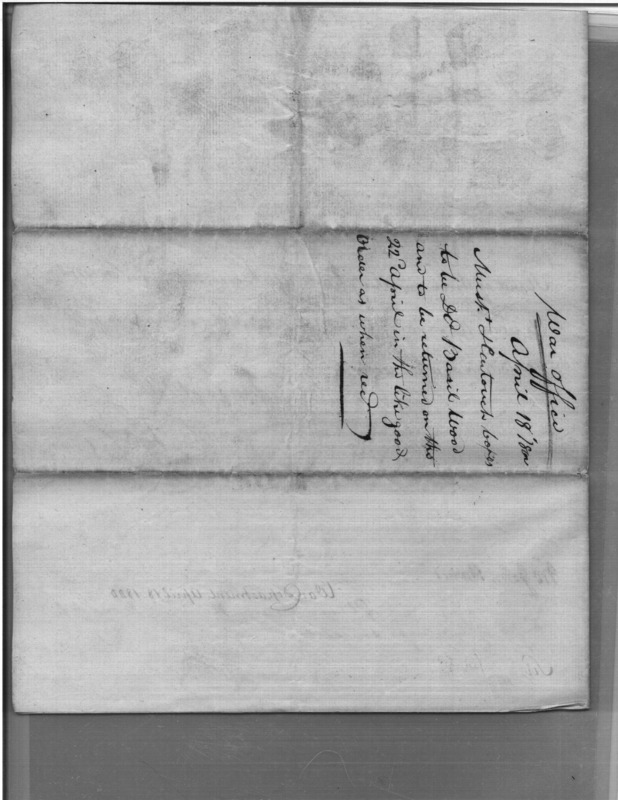 War Office
April 18th 1800
Musk.ts & Cartouch boxes
to be Dd Basil Wood
and to be returned on the
22d April in the like good
Order as when recd
War Department April 18 1800